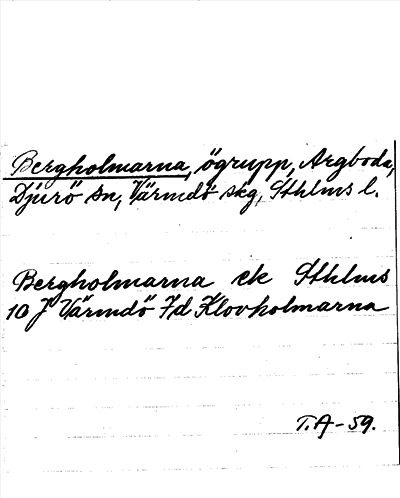 Bergholmarna, ögrupp, Argboda,
Djurö sn, Värmdö skg, Sthlms l.
Bergholmarna ek Sthlms
10 J Värmdö 7d Klovholmarna
T.A-59.